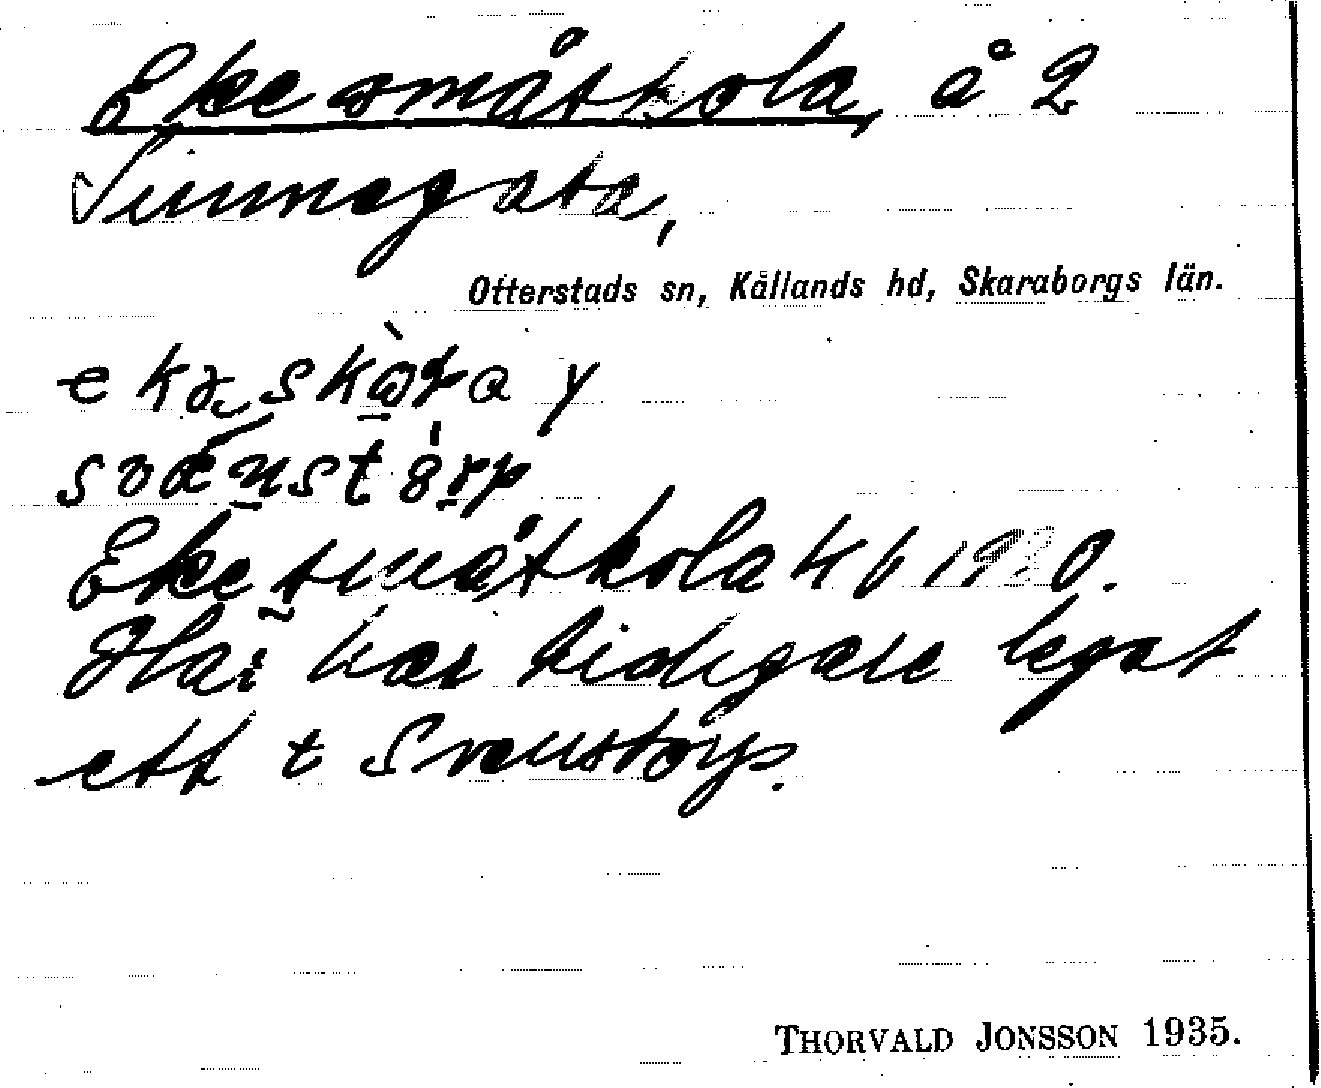 Eke småskola, å 2
Sunnegata,
Otterstads sn, Kållands hd, Skaraborgs län.
y
Eke småskola kb 1920.
Här har tidigare legat
ett t Svenstorp.
THORVALD JONSSON 1935.